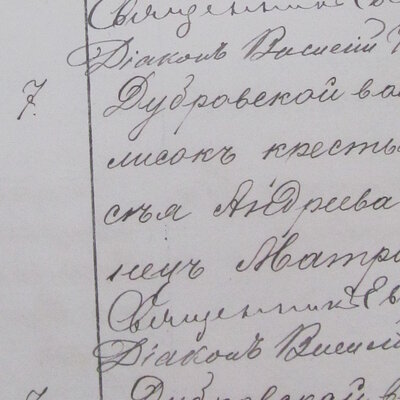 Священникъ
Діаконъ Василій
7. Дубровской вол
лисокъ кресть
сѣя Андреева
нецъ Матр
Священникъ Ев
Діаконъ Василій
Дубровской